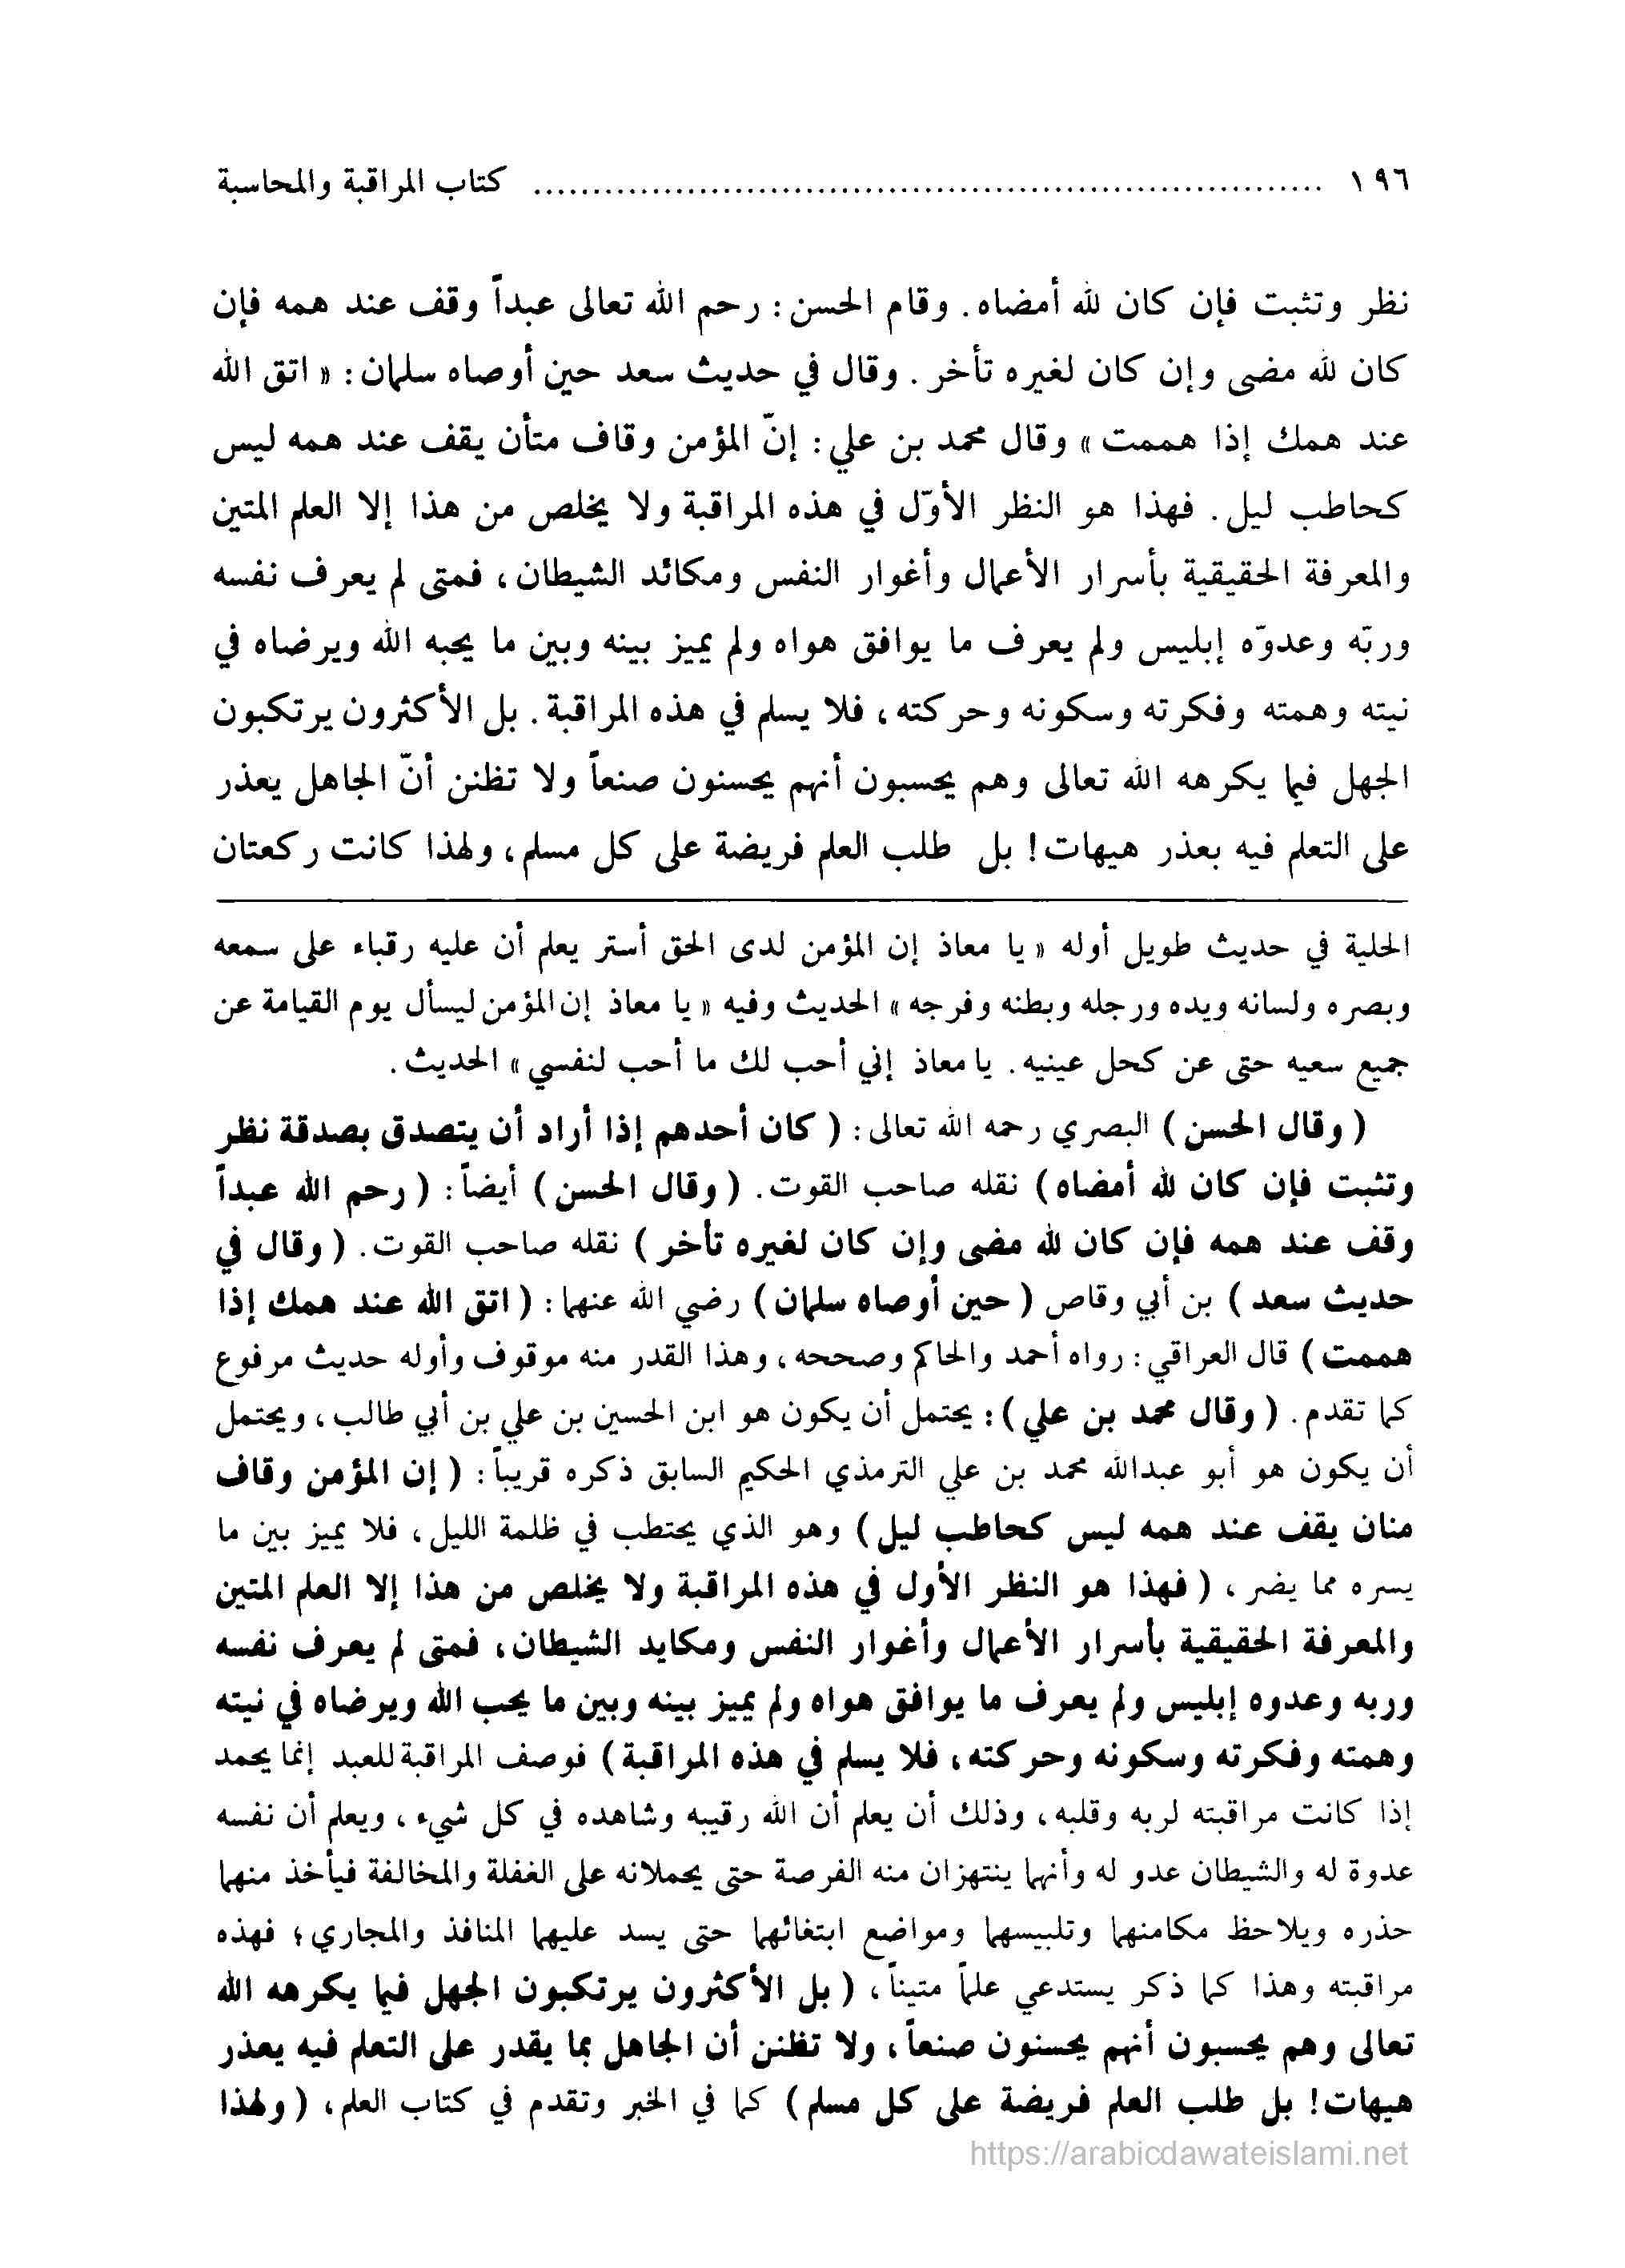 ١٩٦ ................................................................ كتاب المراقبة والمحاسبة
نظر وتثبت فإن كان لله أمضاه. وقام الحسن: رحم الله تعالى عبداً وقف عند همه فإن
كان لله مضى وإن كان لغيره تأخر. وقال في حديث سعد حين أوصاه سلمان: « اتق الله
عند همك إذا هممت » وقال محمد بن علي: إنّ المؤمن وقاف متأن يقف عند همه ليس
كحاطب ليل. فهذا هو النظر الأوّل في هذه المراقبة ولا يخلص من هذا إلا العلم المتين
والمعرفة الحقيقية بأسرار الأعمال وأغوار النفس ومكائد الشيطان، فمتى لم يعرف نفسه
وربّه وعدوّه إبليس ولم يعرف ما يوافق هواه ولم يميز بينه وبين ما يحبه الله ويرضاه في
نيته وهمته وفكرته وسكونه وحركته، فلا يسلم في هذه المراقبة. بل الأكثرون يرتكبون
الجهل فيما يكرهه الله تعالى وهم يحسبون أنهم يحسنون صنعاً ولا تظنن أنّ الجاهل يعذر
على التعلم فيه بعذر هيهات! بل طلب العلم فريضة على كل مسلم، ولهذا كانت ركعتان
الحلية في حديث طويل أوله « يا معاذ إن المؤمن لدى الحق أستر يعلم أن عليه رقباء على سمعه
وبصره ولسانه ويده ورجله وبطنه وفرجه » الحديث وفيه « يا معاذ إن المؤمن ليسأل يوم القيامة عن
جميع سعيه حتى عن كحل عينيه. يا معاذ إني أحب لك ما أحب لنفسي » الحديث.
( وقال الحسن ) البصري رحمه الله تعالى: ( كان أحدهم إذا أراد أن يتصدق بصدقة نظر
وتثبت فإن كان لله أمضاه ) نقله صاحب القوت. ( وقال الحسن ) أيضاً: ( رحم الله عبداً
وقف عند همه فإن كان لله مضى وإن كان لغيره تأخر ) نقله صاحب القوت. ( وقال في
حديث سعد ) بن أبي وقاص ( حين أوصاه سلمان ) رضي الله عنهما: ( اتق الله عند همك إذا
هممت ) قال العراقي: رواه أحمد والحاكم وصححه، وهذا القدر منه موقوف وأوله حديث مرفوع
كما تقدم. ( وقال محمد بن علي ): يحتمل أن يكون هو ابن الحسين بن علي بن أبي طالب، ويحتمل
أن يكون هو أبو عبدالله محمد بن علي الترمذي الحكيم السابق ذكره قريباً: ( إن المؤمن وقاف
منان يقف عند همه ليس كحاطب ليل ) وهو الذي يحتطب في ظلمة الليل، فلا يميز بين ما
يسره مما يضر، ( فهذا هو النظر الأول في هذه المراقبة ولا يخلص من هذا إلا العلم المتين
والمعرفة الحقيقية بأسرار الأعمال وأغوار النفس ومكايد الشيطان، فمتى لم يعرف نفسه
وربه وعدوه إبليس ولم يعرف ما يوافق هواه ولم يميز بينه وبين ما يحب الله ويرضاه في نيته
وهمته وفكرته وسكونه وحركته، فلا يسلم في هذه المراقبة ) فوصف المراقبة للعبد إنما يحمد
إذا كانت مراقبته لربه وقلبه، وذلك أن يعلم أن الله رقيبه وشاهده في كل شيء، ويعلم أن نفسه
عدوة له والشيطان عدو له وأنهما ينتهزان منه الفرصة حتى يحملانه على الغفلة والمخالفة فيأخذ منهما
حذره ويلاحظ مكامنهما وتلبيسهما ومواضع ابتغائهما حتى يسد عليهما المنافذ والمجاري؛ فهذه
مراقبته وهذا كما ذكر يستدعي علماً متيناً، ( بل الأكثرون يرتكبون الجهل فيما يكرهه الله
تعالى وهم يحسبون أنهم يحسنون صنعاً، ولا تظنن أن الجاهل بما يقدر على التعلم فيه يعذر
هيهات! بل طلب العلم فريضة على كل مسلم ) كما في الخبر وتقدم في كتاب العلم، ( ولهذا
https://arabicdawateislami.net